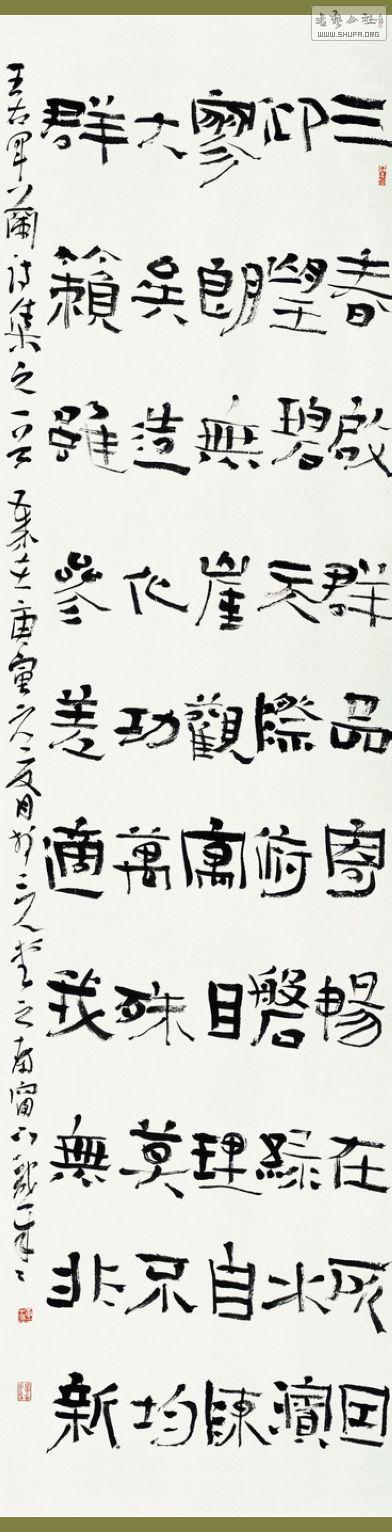 書藝公社
WWW.SHUFA.ORG
三春啟群品寄暢在所因
仰望碧天際俯磐綠水濱
寥朗無崖觀寓目理自陳
大矣造化功萬殊莫不均
群籟雖參差適我無非新
王右軍蘭詩集之一 庚寅 夏月於三 堂之南窗下